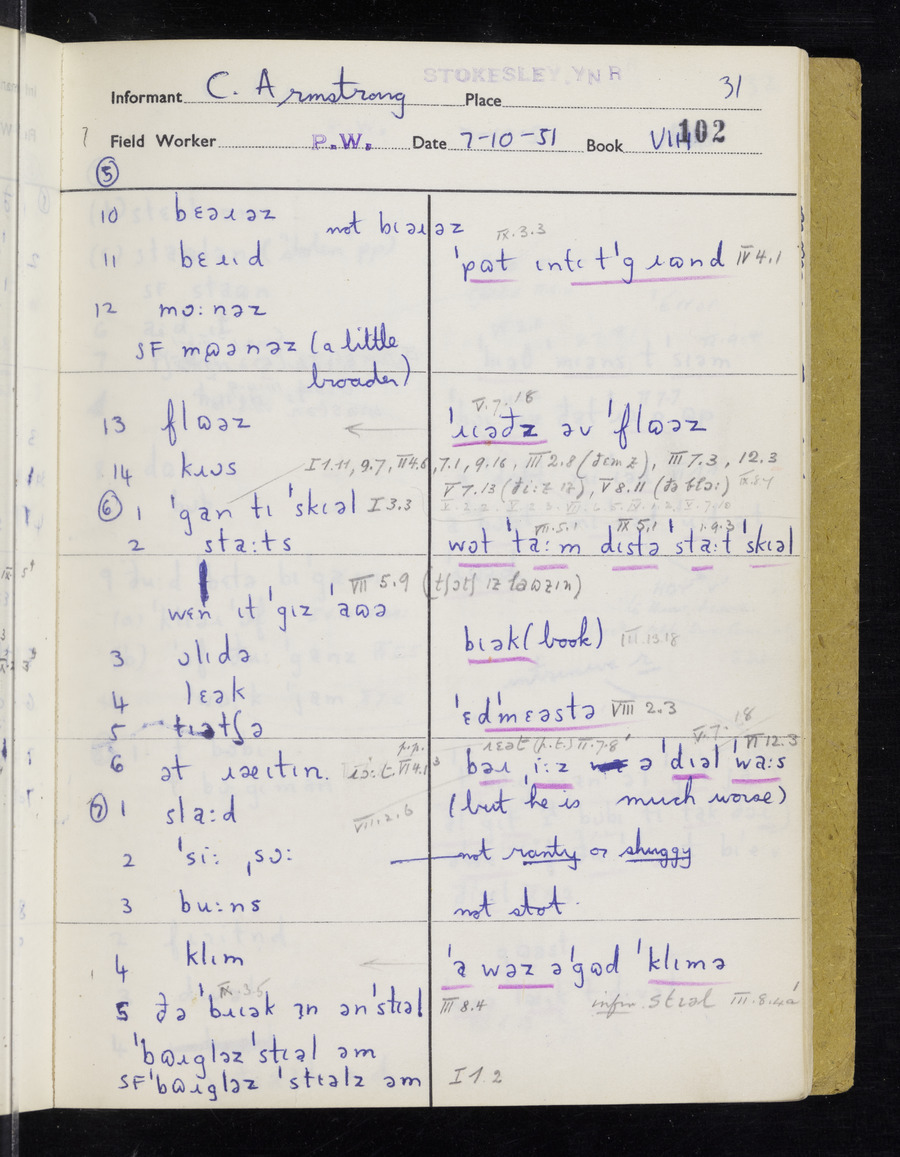 STOKESLEY. YN R
Informant C. Armstrong Place 31
Field Worker P.W. Date 7-10-51 Book VIII 102
⑤
10 bɛəɹəz not bɪəɹəz
IX.3.3
11 bɛɹɪd 'pɷt ɪntɪ t'gɹɷnd IV 4.1
12 mɔ:nəz
SF mɷənəz (a little broader)
V.7.18
13 flɷəz 'ɹɪədz əv 'flɷəz
14 kɹɒs I 1.11, 9.7, II 4.6, 7.1, 9.16, III 2.8 (ðɛmz), III 7.3, 12.3
V 7.13 (ði:z ɪz), V 8.11 (ðə blɔ:)
⑥ 1 'gan tɪ 'skɪəl I 3.3
VII.5.1 IX 5.1 1.9.3
2 sta:ts wɒt 'ta:m dɪstə 'sta:t 'skɪəl
VII 5.9 (tʃɒtʃ ɪz lawzɪn)
wɛn ɪt 'gɪz 'aɷə
3 ɒlɪdə bɪək (book) III.13.18
4 lɛək 'ɛd'mɛəstə VIII 2.3
5 tɪətʃə
ɹɛət (p.t.) II.7.8 V.7.18 VI 12.3
6 ət ɹəɛɪtɪn. p.p. VI 4.1 bəɪ ˌi:z ə 'dɪəl 'wa:s
⑦ 1 sla:d VII.2.6 (but he is much worse)
2 'si: ˌsɔ: not ranty or shuggy
3 bu:ns not stot.
4 klɪm 'a wəz ə'gɷd 'klɪmə
IX.3.5
5 ðə 'bɹɪək ɪn ən'stɪəl III 8.4 infin stɪəl III.8.4a
'bɷɪgləz 'stɪəl əm
SF 'bɷɪgləz 'stɪəlz əm I 1.2